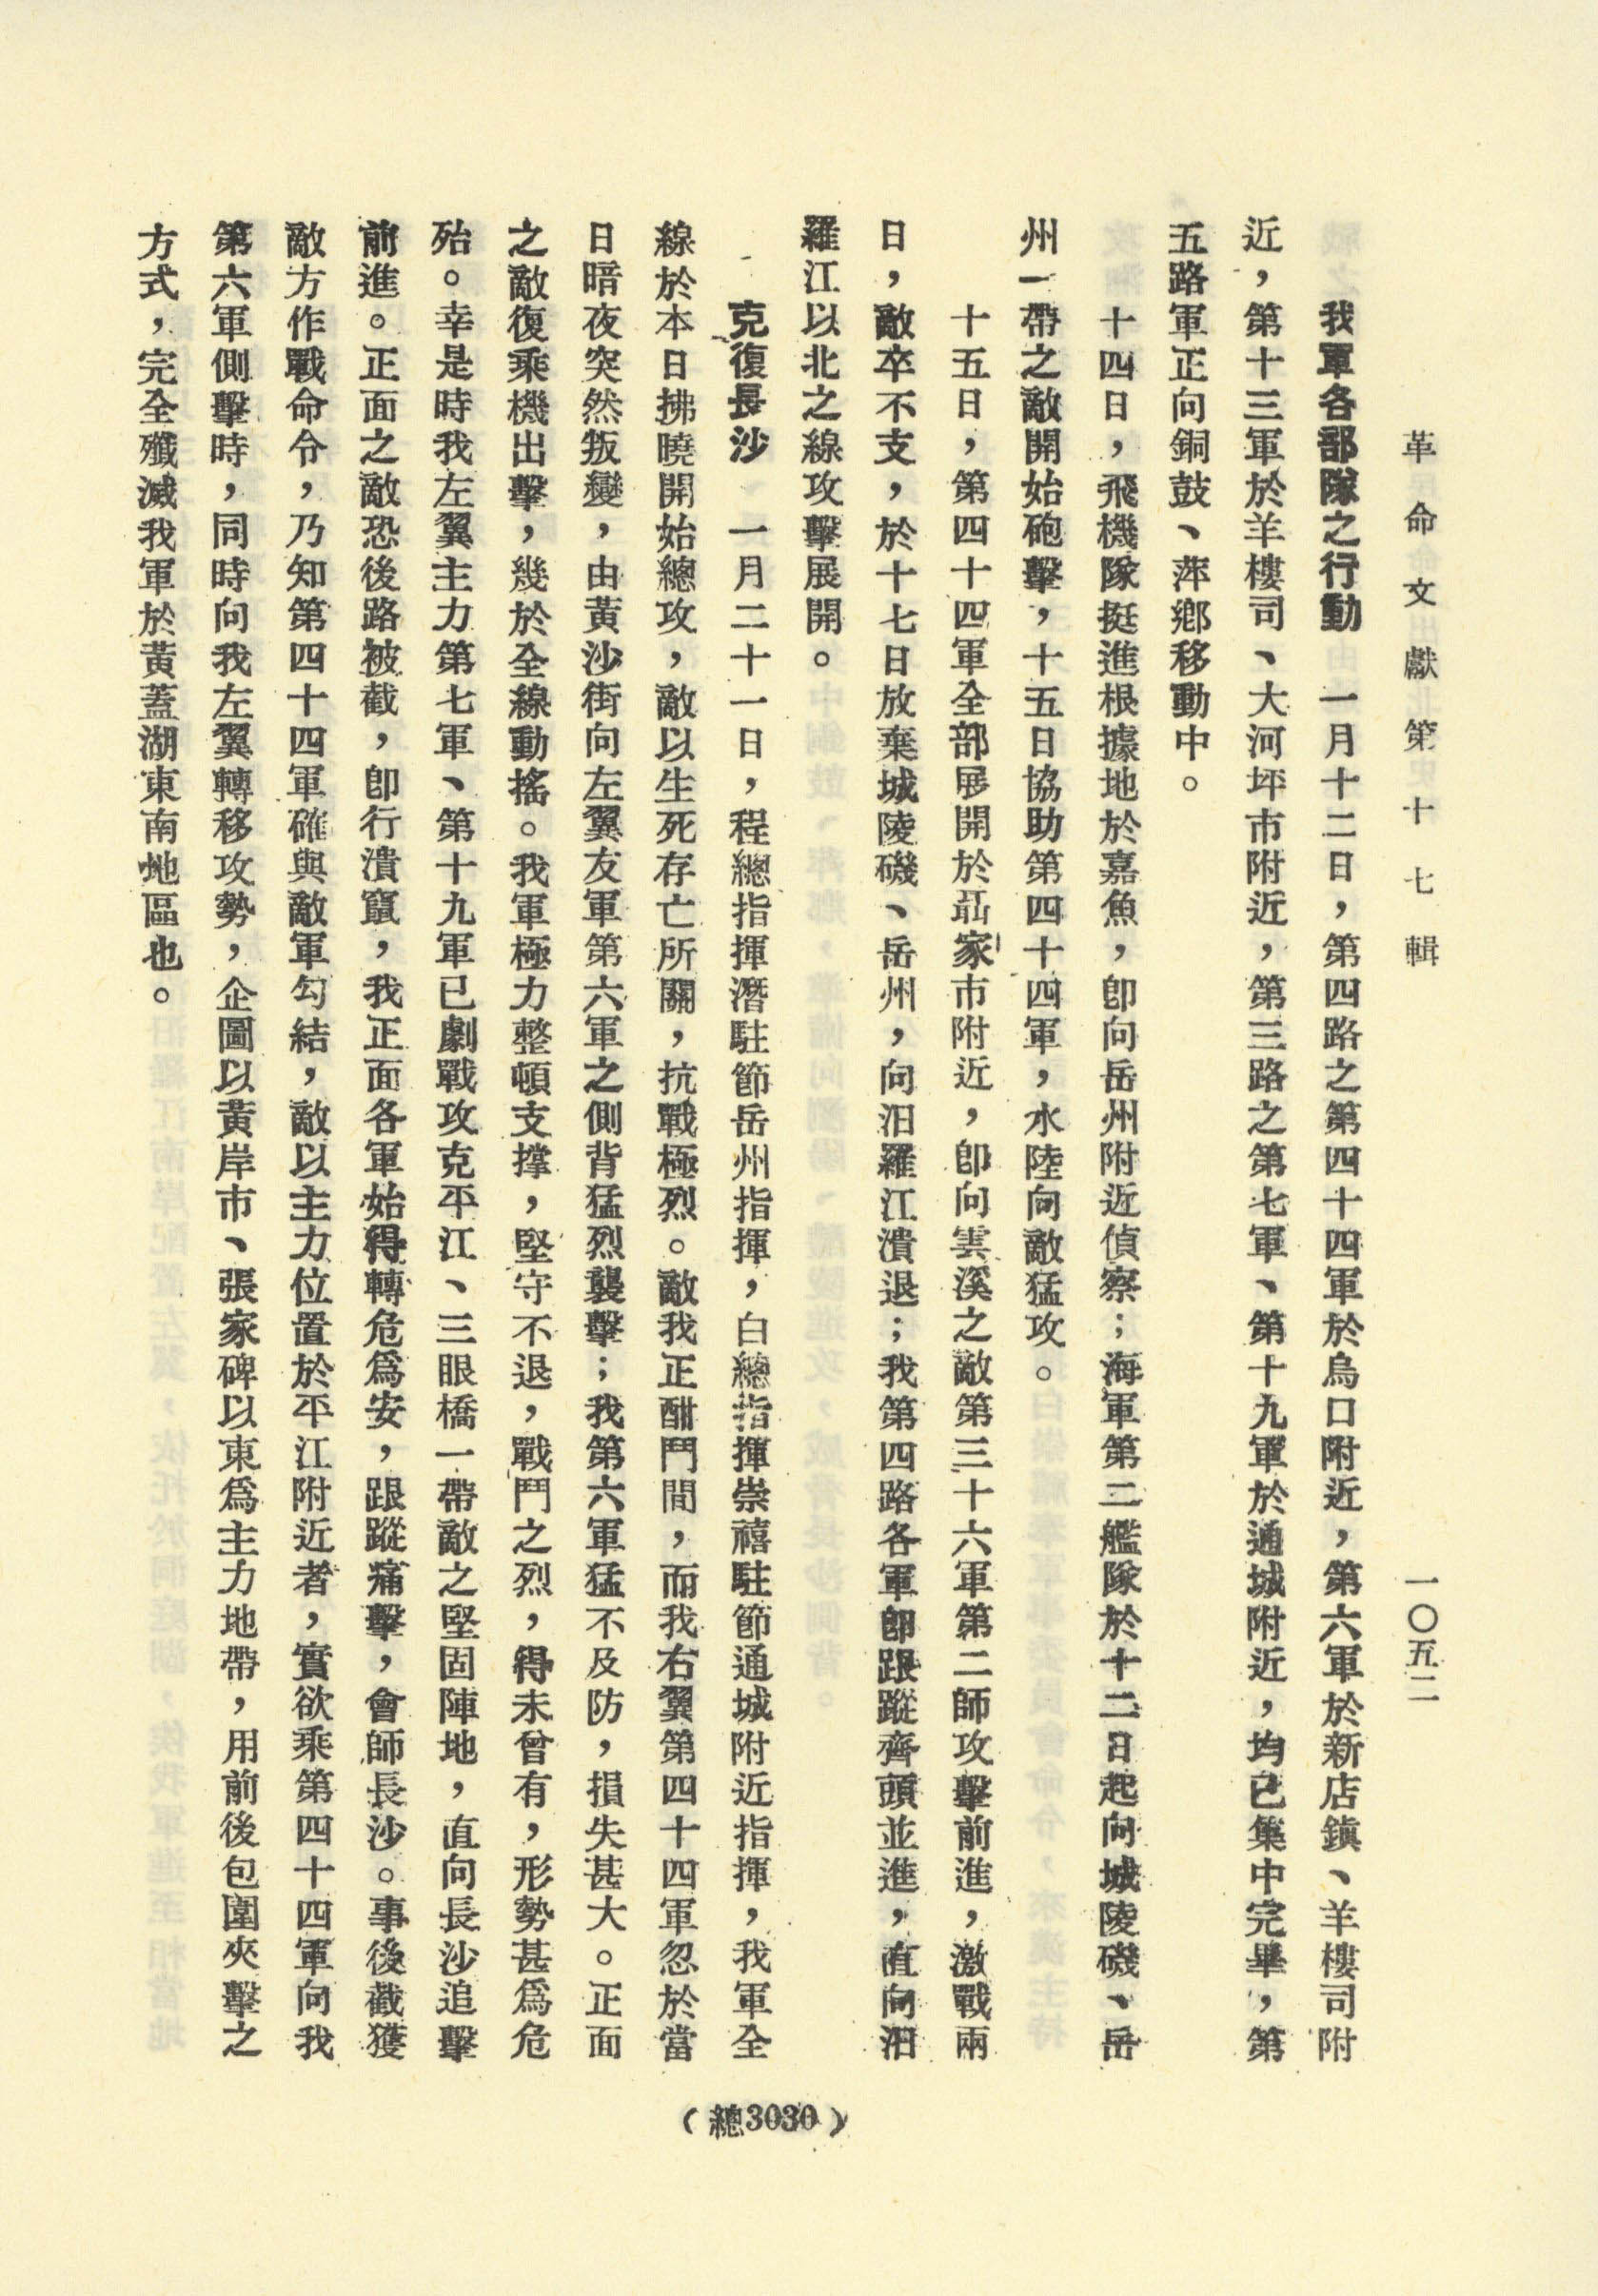 革命文獻第十七輯
一〇五二
我軍各部隊之行動　一月十二日，第四路之第四十四軍於烏口附近，第六軍於新店鎮、羊樓司附
近，第十三軍於羊樓司、大河坪市附近，第三路之第七軍、第十九軍於通城附近，均已集中完畢，第
五路軍正向銅鼓、萍鄉移動中。
十四日，飛機隊挺進根據地於嘉魚，卽向岳州附近偵察；海軍第二艦隊於十二日起向城陵磯、岳
州一帶之敵開始砲擊，十五日協助第四十四軍，水陸向敵猛攻。
十五日，第四十四軍全部展開於聶家市附近，卽向雲溪之敵第三十六軍第二師攻擊前進，激戰兩
日，敵卒不支，於十七日放棄城陵磯、岳州，向汨羅江潰退；我第四路各軍卽跟蹤齊頭並進，直向汨
羅江以北之線攻擊展開。
克復長沙　一月二十一日，程總指揮潛駐節岳州指揮，白總指揮崇禧駐節通城附近指揮，我軍全
線於本日拂曉開始總攻，敵以生死存亡所關，抗戰極烈。敵我正酣鬥間，而我右翼第四十四軍忽於當
日暗夜突然叛變，由黃沙街向左翼友軍第六軍之側背猛烈襲擊；我第六軍猛不及防，損失甚大。正面
之敵復乘機出擊，幾於全線動搖。我軍極力整頓支撐，堅守不退，戰鬥之烈，得未曾有，形勢甚爲危
殆。幸是時我左翼主力第七軍、第十九軍已劇戰攻克平江、三眼橋一帶敵之堅固陣地，直向長沙追擊
前進。正面之敵恐後路被截，卽行潰竄，我正面各軍始得轉危爲安，跟蹤痛擊，會師長沙。事後截獲
敵方作戰命令，乃知第四十四軍確與敵軍勾結，敵以主力位置於平江附近者，實欲乘第四十四軍向我
第六軍側擊時，同時向我左翼轉移攻勢，企圖以黃岸市、張家碑以東爲主力地帶，用前後包圍夾擊之
方式，完全殲滅我軍於黃蓋湖東南地區也。
（總3030）